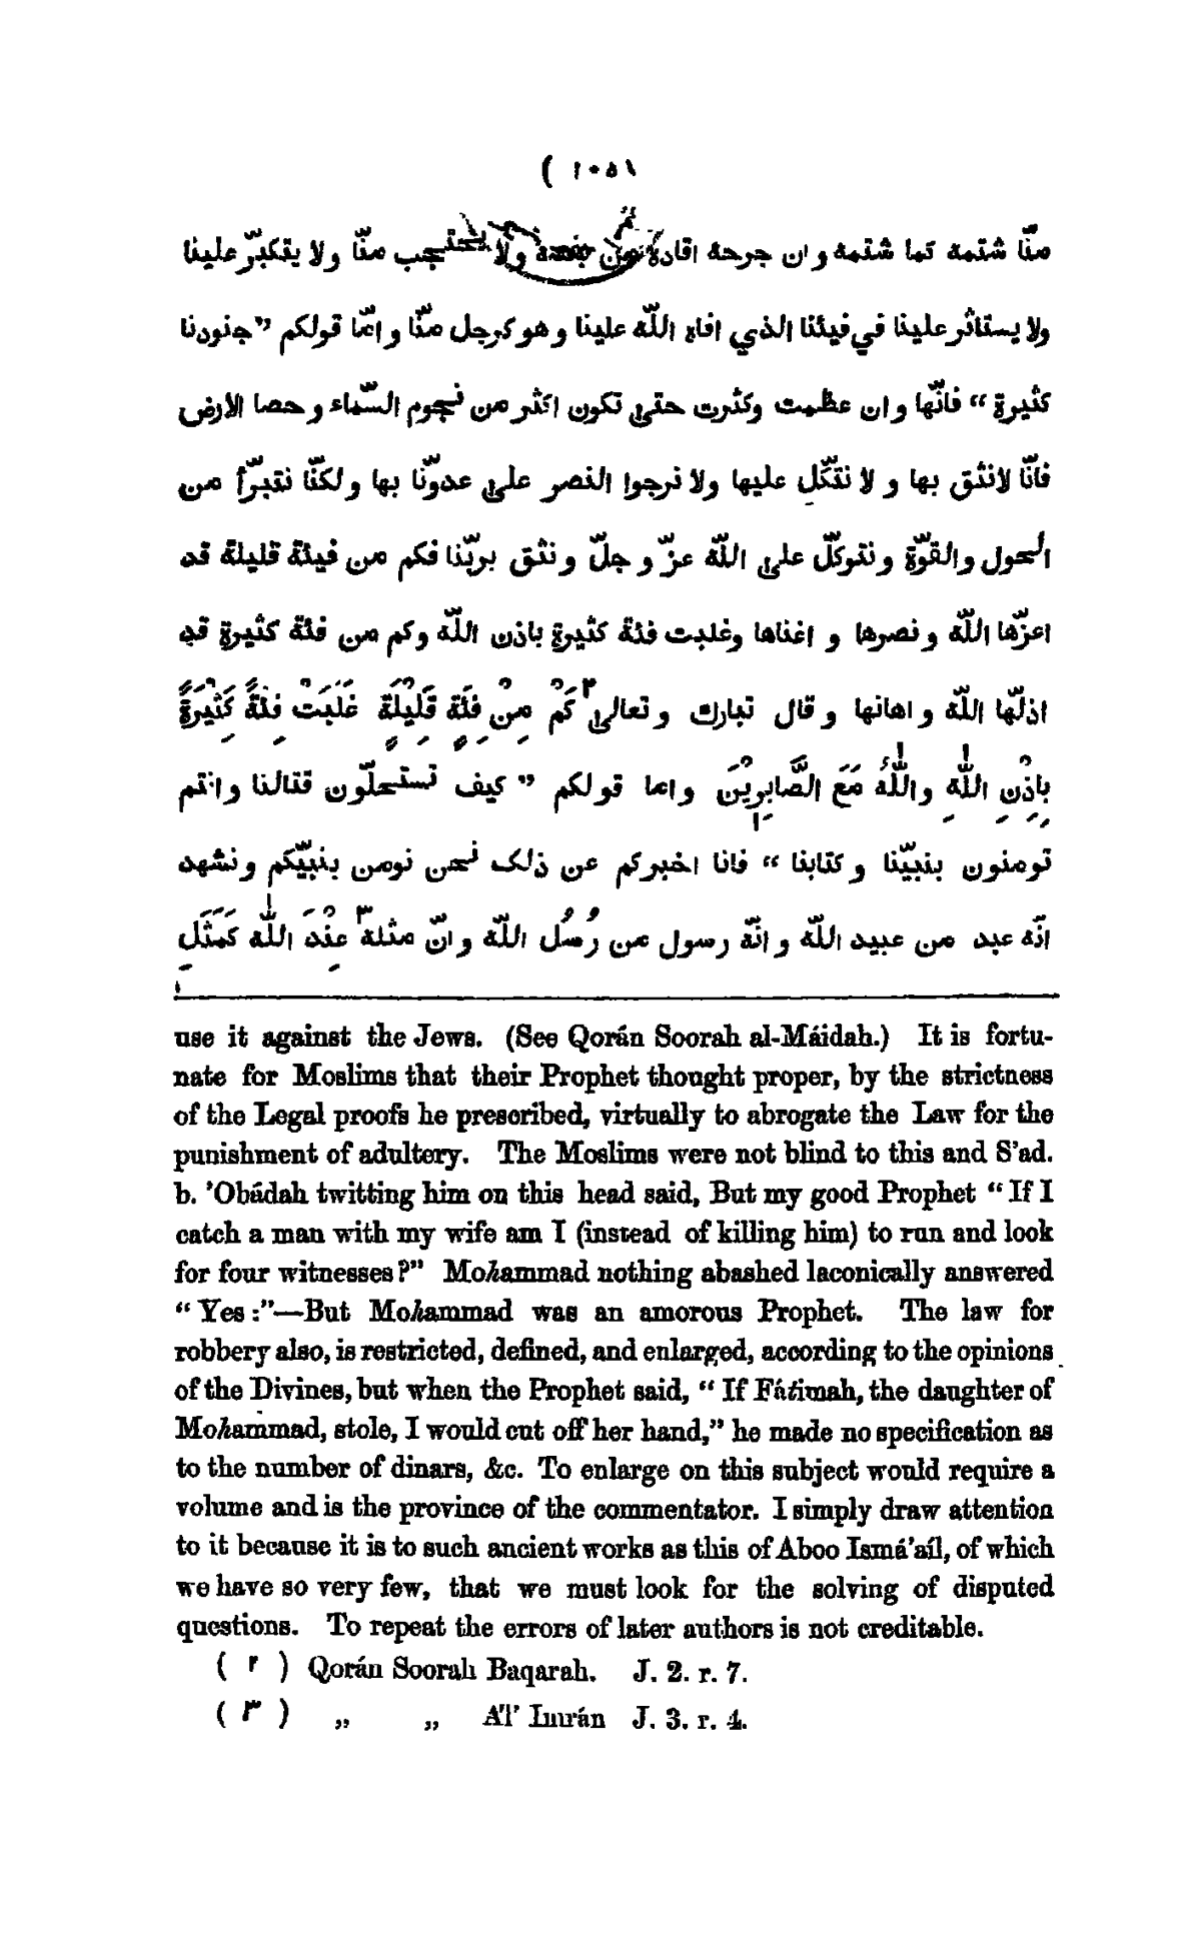 ( ١٠٥١
منّا شتمه كما شتمه وان جرحه اقاده من نفسه ولا يحتجب منّا ولا يتكبّر علينا
ولا يستاثر علينا في فيئنا الذي افاء اللّه علينا وهو كرجل منّا وامّا قولكم ”جنودنا
كثيرة“ فانّها وان عظمت وكثرت حتى تكون اكثر من نجوم السّماء وحصا الارض
فانّا لانثق بها و لا نتّكل عليها ولا نرجوا النصر على عدوّنا بها ولكنّا نتبرّأ من
الحول والقوّة ونتوكّل على اللّه عزّ وجلّ ونثق بربّنا فكم من فيئة قليلة قد
اعزّها اللّه ونصرها و اغناها وغلبت فئة كثيرة باذن اللّه وكم من فئة كثيرة قد
اذلّها اللّه واهانها وقال تبارك وتعالى ٢ كَمْ مِنْ فِئَةٍ قَلِيْلَةٍ غَلَبَتْ فِئَةً كَثِيْرَةً
بِاِذْنِ اللّٰهِ واللّٰهُ مَعَ الصَّابِرِيْنَ واما قولكم ” كيف تستحلّون قتالنا وانتم
تومنون بنبيّنا وكتابنا “ فانا اخبركم عن ذلك نحن نومن بنبيّكم ونشهد
انّه عبد من عبيد اللّه وانّه رسول من رُسُل اللّه وانّ مثله ٣ عِنْدَ اللّٰه كَمَثَلِ
use it against the Jews. (See Qorán Soorah al-Máidah.) It is fortu-
nate for Moslims that their Prophet thought proper, by the strictness
of the Legal proofs he prescribed, virtually to abrogate the Law for the
punishment of adultery. The Moslims were not blind to this and S’ad.
b. ’Obádah twitting him on this head said, But my good Prophet “If I
catch a man with my wife am I (instead of killing him) to run and look
for four witnesses?” Mohammad nothing abashed laconically answered
“Yes:”—But Mohammad was an amorous Prophet. The law for
robbery also, is restricted, defined, and enlarged, according to the opinions
of the Divines, but when the Prophet said, “If Fátimah, the daughter of
Mohammad, stole, I would cut off her hand,” he made no specification as
to the number of dinars, &c. To enlarge on this subject would require a
volume and is the province of the commentator. I simply draw attention
to it because it is to such ancient works as this of Aboo Ismá’aíl, of which
we have so very few, that we must look for the solving of disputed
questions. To repeat the errors of later authors is not creditable.
( ٢ ) Qorán Soorah Baqarah. J. 2. r. 7.
( ٣ ) „ „ A'l’ Imrán J. 3. r. 4.